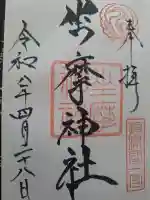 奉拝
坐摩神社
令和八年四月二十八日